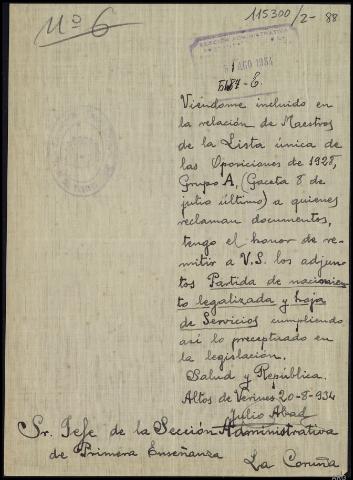 115300/2-88
Nº 6
SECCIÓN ADMINISTRATIVA
AGO 1934
5187-E.
Viéndome incluido en
la relación de Maestros
de la Lista única de
las Oposiciones de 1928,
Grupo A, (Gaceta 8 de
julio último) a quienes
reclaman documentos,
tengo el honor de re-
mitir a V.S. los adjun-
tos Partida de nacimien-
to legalizada y hoja
de Servicios cumpliendo
así lo preceptuado en
la legislación.
Salud y República.
Altos de Verines 20-8-934
Julio Abad
Sr. Jefe de la Sección Administrativa
de Primera Enseñanza
La Coruña